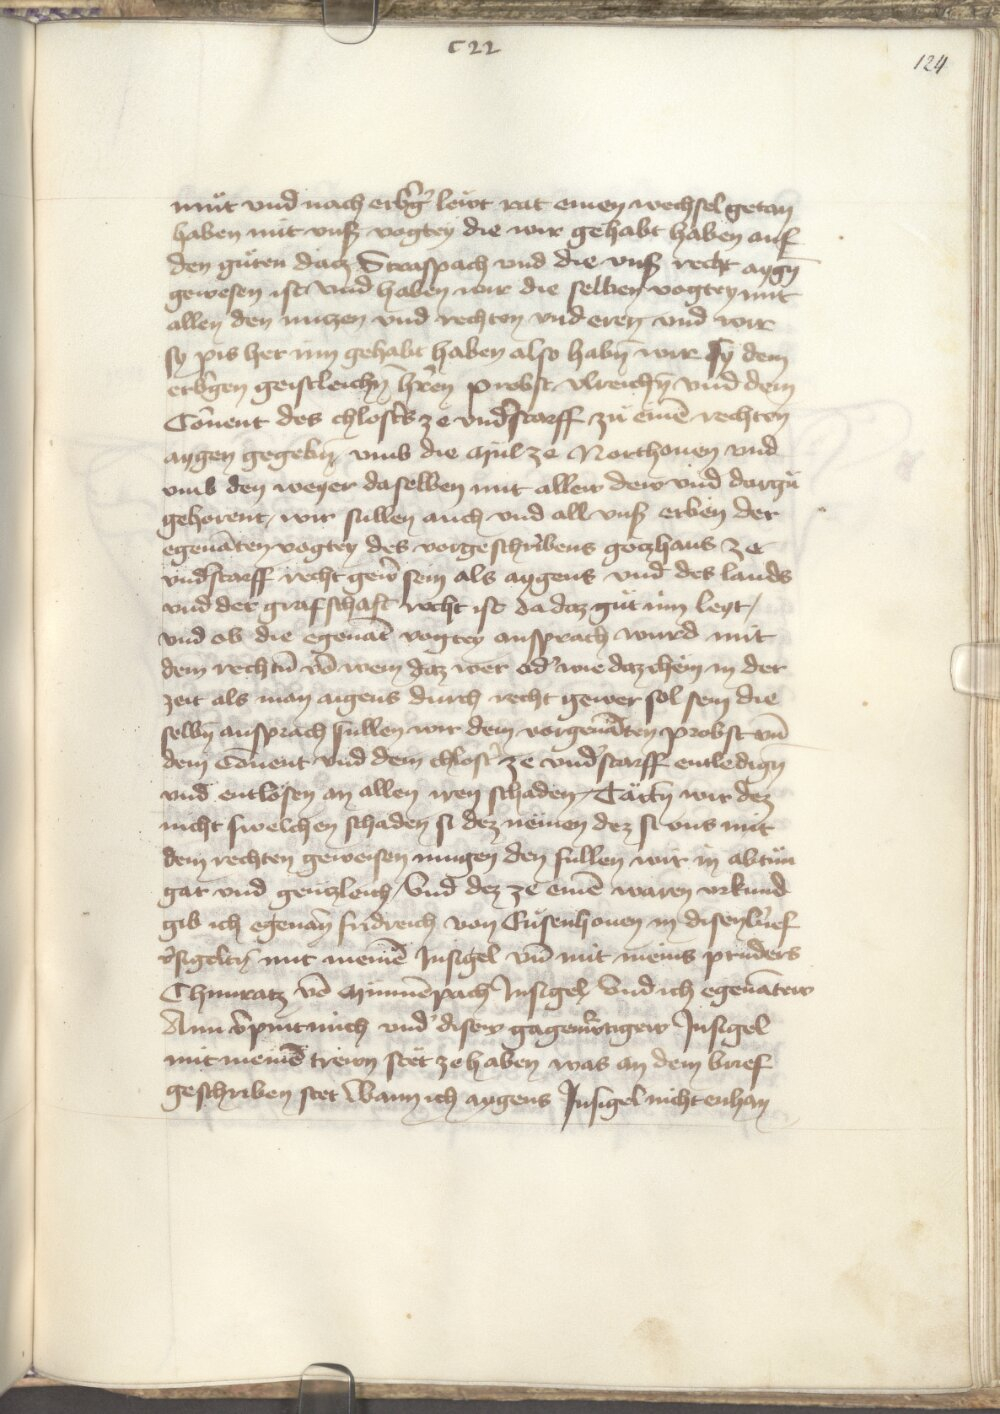 C 22
124
muͤt vnd nach erbg̃ leẅt rat einen wechsel getan
haben mit vnsß vogtey die wir gehabt haben auf
den guͤten dacz Straspach vnd die vnsß recht aygñ
gewesen ist vnd haben wir die selben vogtey mit
allen den nuczen vnd rechten vnd eren vnd wir
sy pis her inn gehabt haben also habñ wir sy dem
erbgen geistleichñ hr̃en probst Vlreichñ vnd dem
Cõuent des chlosters ze vnderstarff zu einẽ rechten
aygen gegebñ, vmb die Mül ze Northouen vnd
vmb den weyer daselben mit allew dew vnd darzuͤ
gehorent, wir sullen auch vnd all vnsß erben der
egenãten vogtey des vorgeschribens goczhaus ze
vnderstarff recht gewer sein als aygens vnd des lands
vnd der grafschaft recht ist da daz guͤt inn leyt /
vnd ob die egenãt vogtey ansprach wurd mit
dem rechtñ võ wem daz wer oder wie daz chëm in der
zeit als man aigens durch recht gewer sol sein die
selbñ ansprach sullen wir dem vorgenãten probst vñ
dem Cõuent vnd dem chloster ze vnderstarff entledigñ
vnd entlösen an allen iren schaden / Tätñ wir dez
nicht swelchen schaden si dez nëmen dez si vns mit
dem rechten geweisen mugen den sullen wir in abtuͤn
gar vnd genczleich / Vnd dez ze einẽ waren vrkund
gib ich egenañ fridreich von Cüsenhouen in disen brief
v̾sigeltñ mit meinẽ Insigel vñ mit meins pruders
Chunratz võ Minnẽpach Insigel, Vnd ich egenãtew
Ann v̾pint mich vnder disew gagenwrtigew Insigel
mit meinẽ trewn stët ze haben was an dem brief
geschriben stet Wann ich aygens Insigel nicht enhan